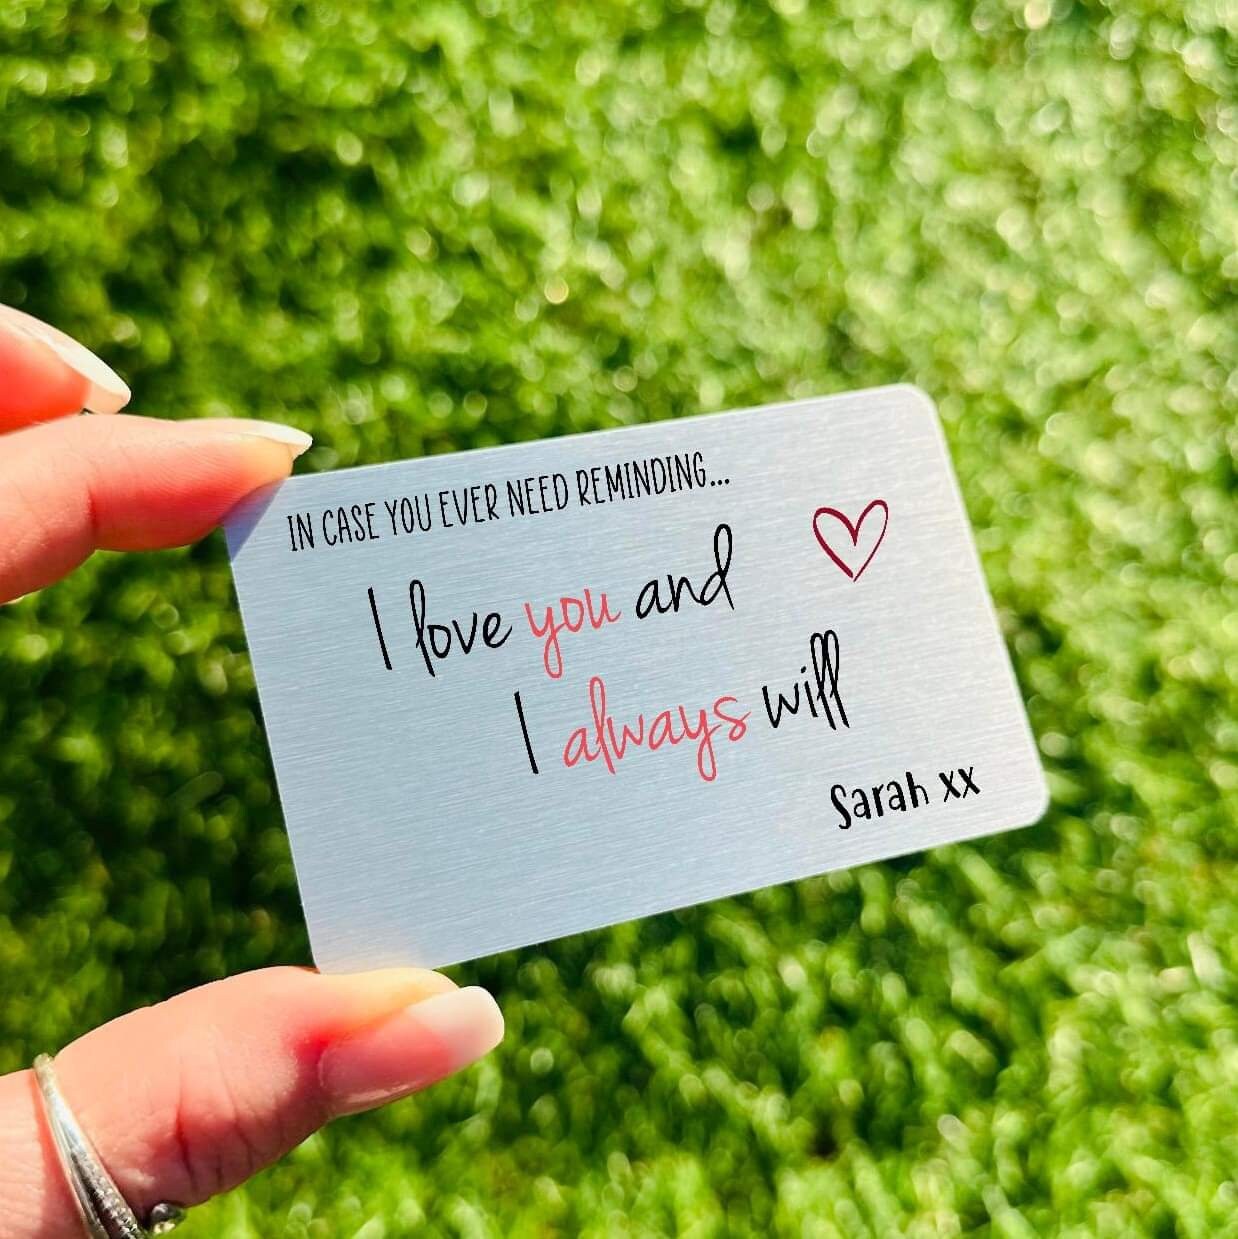 IN CASE YOU EVER NEED REMINDING...
I love you and
I always will
Sarah xx